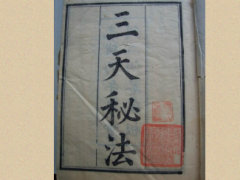 三天秘法